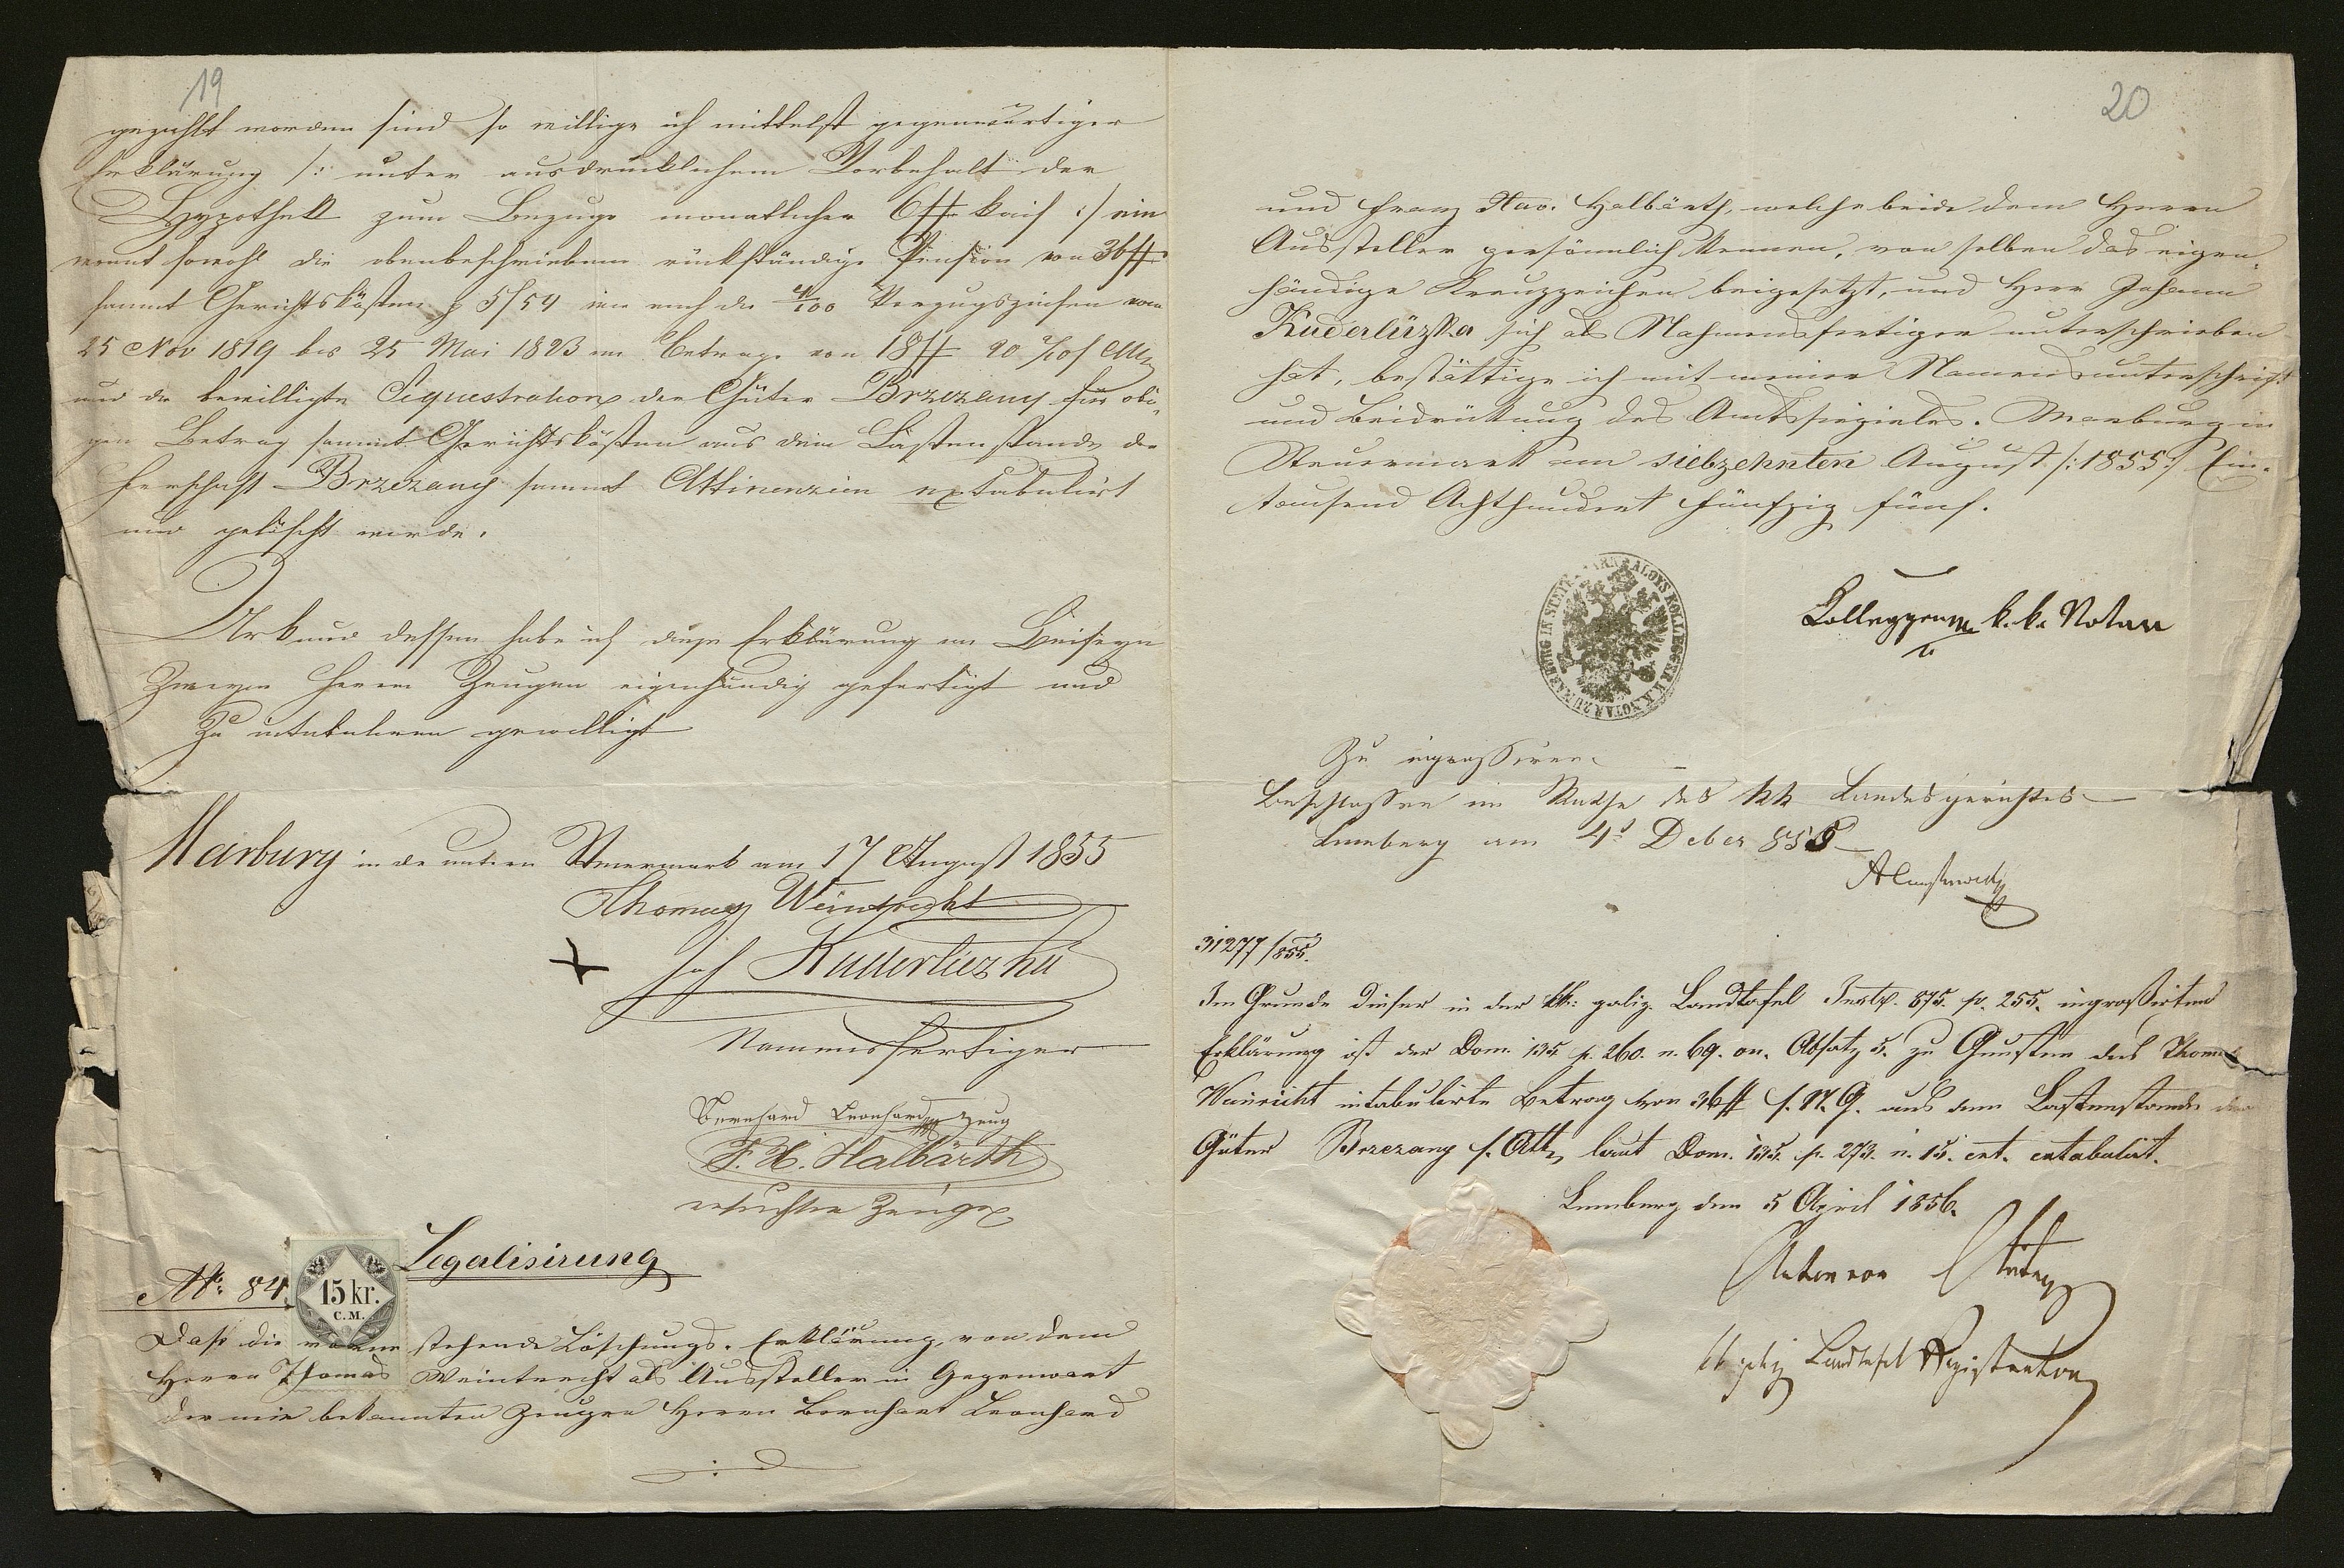 19
gezahlt worden sind so willige ich mittelst gegenwärtiger
Erklärung /: unter ausdrücklichem Vorbehalt der
Hypothek zum Bezuge monatlicher 6 ff :/ ein
womit sowohl die obenbeschriebene rückständige Pension von 36 ff
sammt Gerichtskösten 5/54 auch die 4/100 Verzugszinsen vom
25 Nov 1819 bis 25 Mai 1823 im Betrage von 18 ff 20
und die bewilligte Sequestration der Güter Brzezany für obi-
gen Betrag sammt Gerichtskösten aus dem Lastenstande der
Herschaft Brzezany sammt Attinenzien extabulirt
und gelöscht werde.
Urkund dessen habe ich diese Erklärung im Beiseyn
Zweyer Herren Zeugen eigenhändig gefertigt und
Zu intabuliren gewilligt
Marburg in der untern Steuermark am 17 August 1855
Thomas Weintrecht
Joh Kuderliezka
Namensfertiger
Bernhard Leonhard Zeug
F. X. Halbärth
ersuchter Zeuge
No: 84.
15 kr.
C.M.
Legalisirung
Daß die vorne stehende Löschungs-Erklärung, von dem
Herrn Thomas Weintrecht als Aussteller in Gegenwart
der mir bekannten Zeugen Herrn Bernhart Leonhard
20
und Franz Xav. Halbärth, welche beide dem Herrn
Aussteller persönnlich kennen, von selben das eigen-
händige Kreuzzeichen beigesetzt, und Herr Johann
Kuderlüzka sich als Nahmensfertiger unterschrieben
hat, bestättige ich mit meiner Namensunterschrift
und Beidrückung des Amtssiegieles. Marburg in
Steuermark am siebzehnten August /: 1855 :/ Ein-
tausend Achthundert fünfzig fünf.
ALOYS KOLLEGGER K.K. NOTAR ZU MARBURG IN STEYERMARK
Kollegger k.k. Notar
Zu ingrossiren
Beschlossen im Rathe des kk Landesgerichtes
Lemberg am 4t Dcber 855
31277/855.
Im Grunde dieser in der kk: galiz. Landtafel Instr. 875. p. 255. ingroßirten
Erklärung ist der Dom. 135. p. 260. n. 69. on. Absatz 5. zu Gunsten des Thomas
Weinricht intabulirte Betrag von 36 ff s. N. G. aus dem Lastenstande der
Güter Brzezany s. Att. laut Dom. 135. p. 273. n. 15. ext. extabulirt.
Lemberg den 5 April 1856.
Anton von
kk galiz Landtafel Registrator